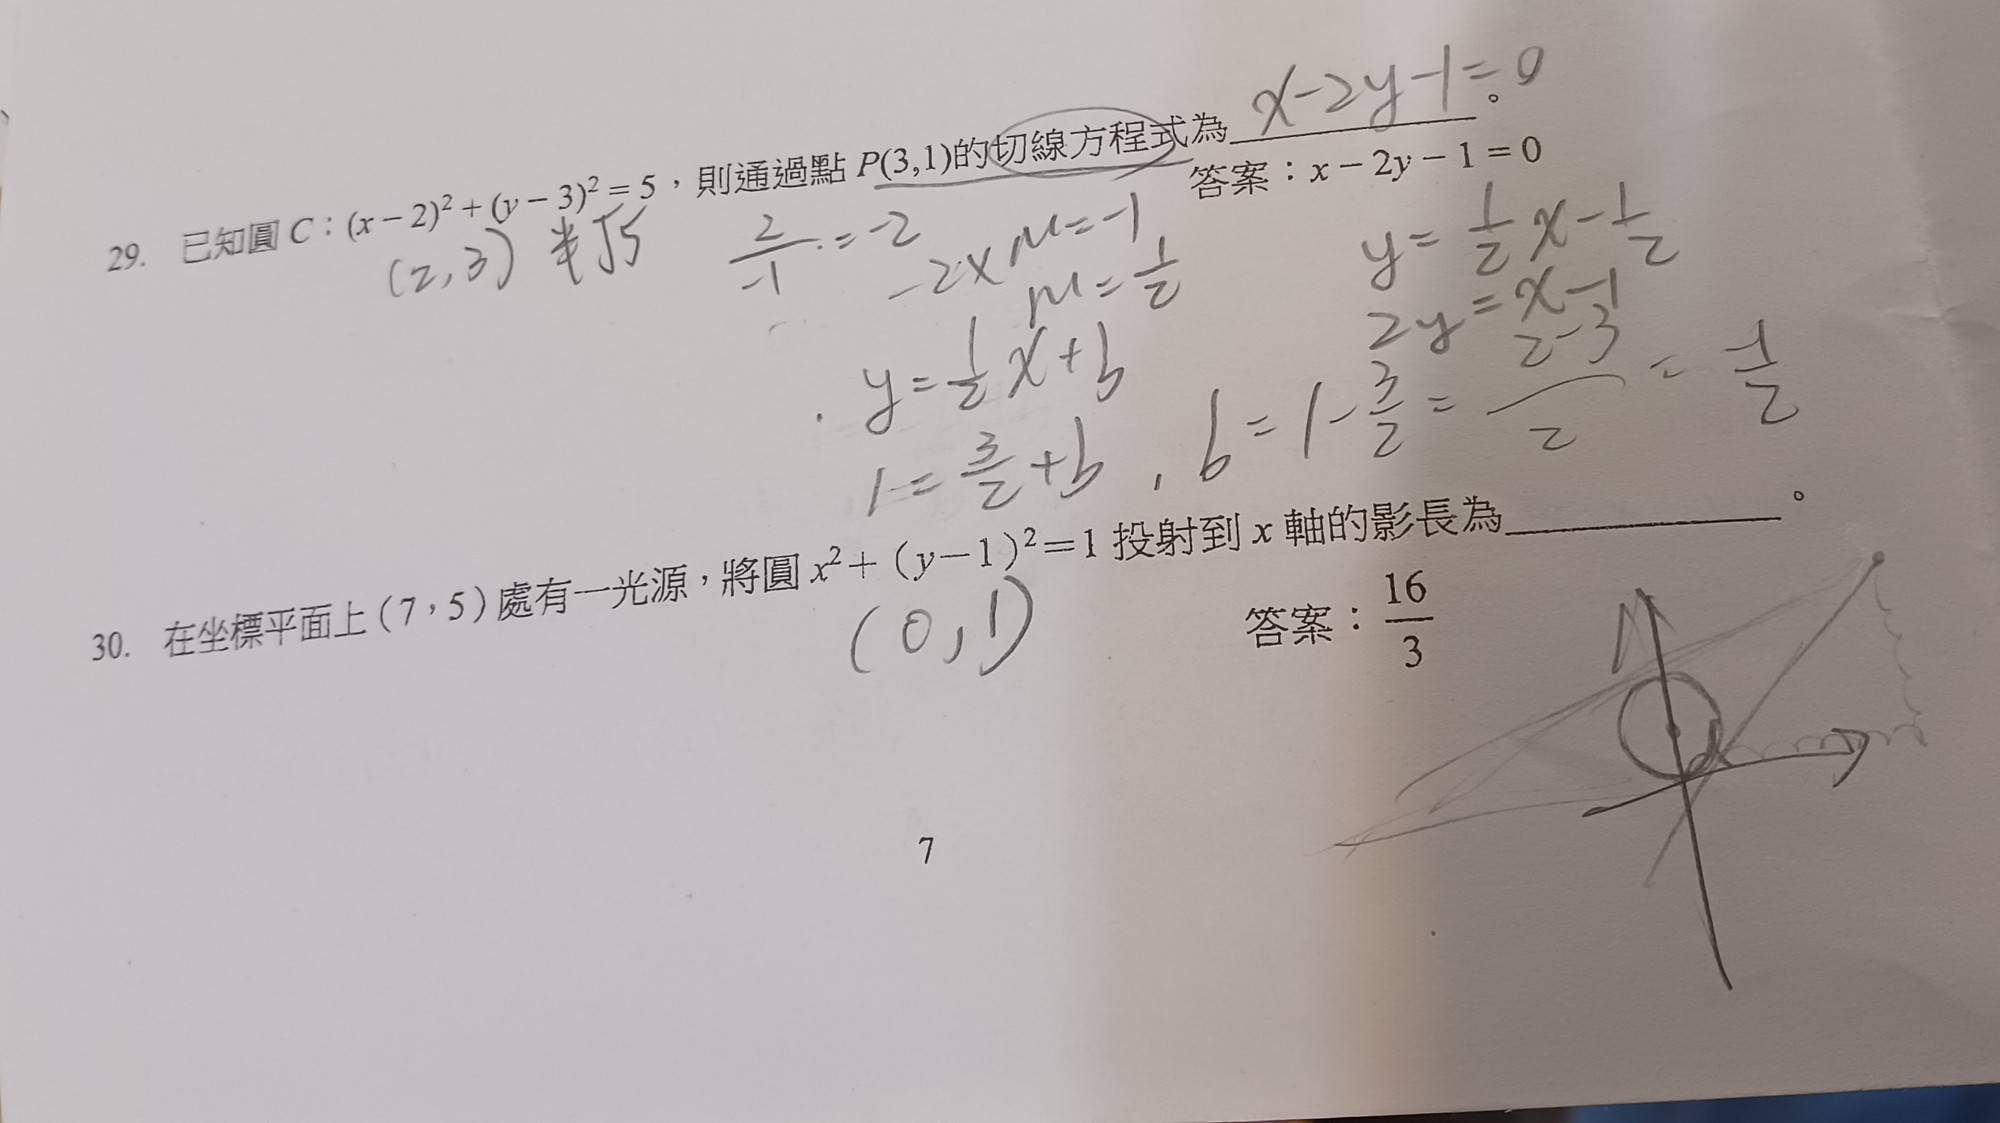 x-2y-1=0
29. 已知圓 C：(x-2)²+(y-3)²=5，則通過點 P(3,1)的切線方程式為________。
答案：x-2y-1=0
(2,3) 半√5
2/-1=-2
-2×m=-1
m=1/2
y=1/2x+b
1=3/2+b, b=1-3/2=2-3/2=-1/2
y=1/2x-1/2
2y=x-1
30. 在坐標平面上(7，5)處有一光源，將圓 x²+(y-1)²=1 投射到 x 軸的影長為________。
(0,1)
答案：16/3
7